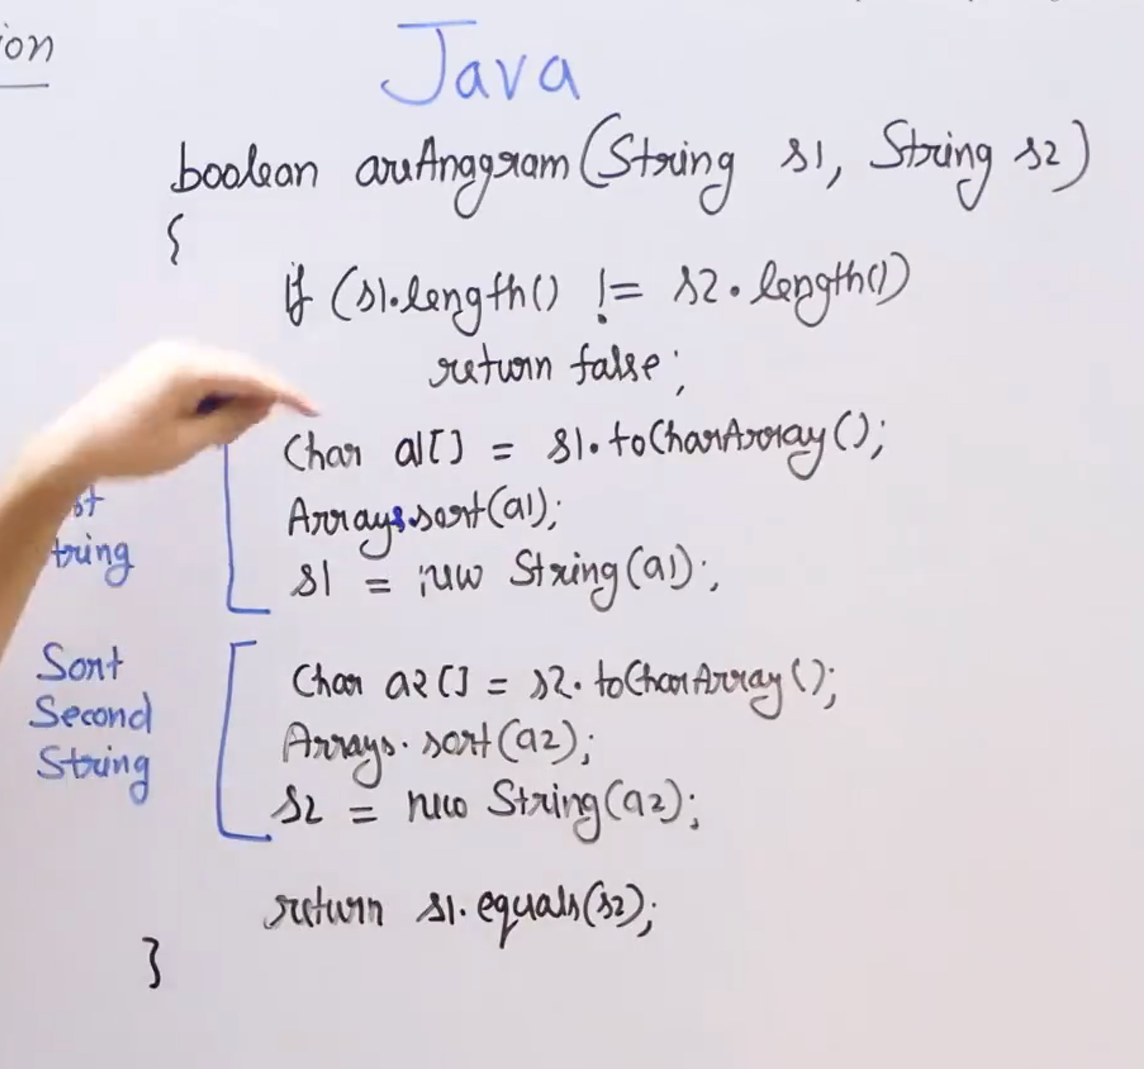 ion
Java
boolean areAnagram(String s1, String s2)
{
if (s1.length() != s2.length())
return false;
Char a1[] = s1.toCharArray();
Arrays.sort(a1);
s1 = new String(a1);
st
tring
Sort
Second
String
Char a2[] = s2.toCharArray();
Arrays.sort(a2);
s2 = new String(a2);
return s1.equals(s2);
}